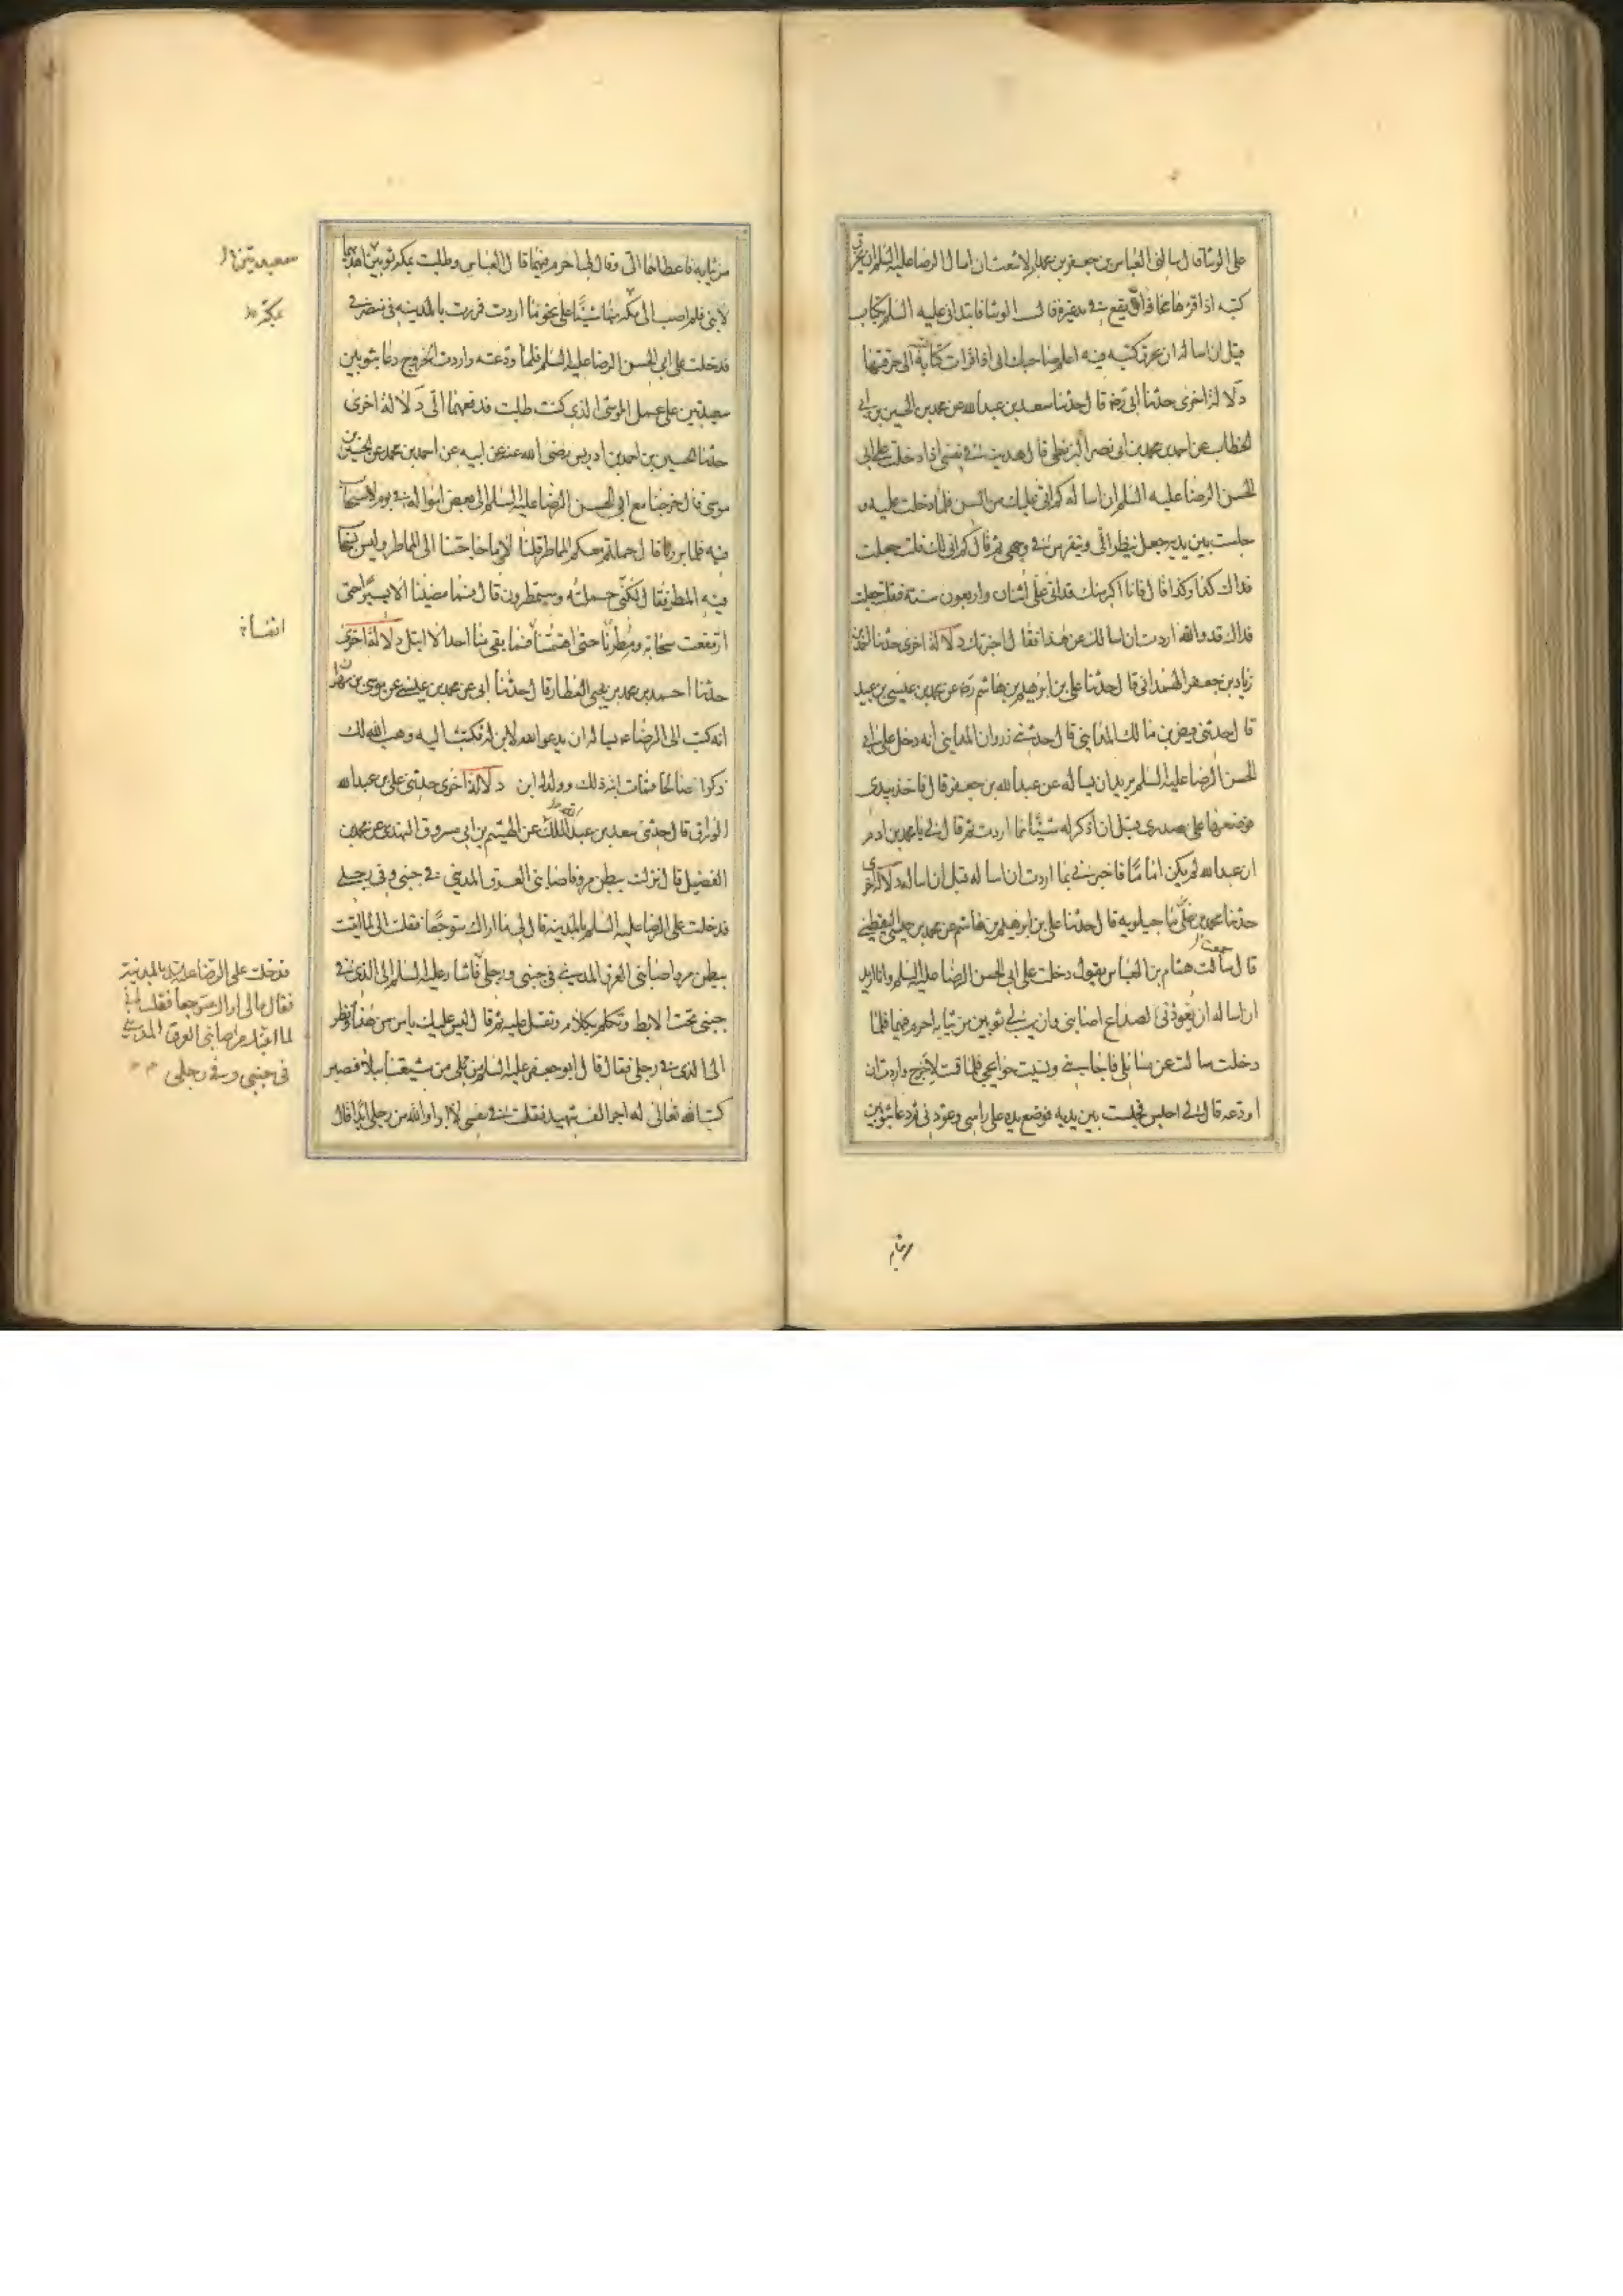 على الوشا قال سالنى العباس بن جعفر بن محمد بن الاشعث ان اسال الرضا عليه السلم ان يخرق
كتبه اذا قرءها مخافة ان يقع فى يد غيره قال الوشا فابتدانى عليه السلم بكتاب
قبل ان اساله ان يخرق كتبه فيه اعلم صاحبك انى اذا قرات كتابه الى خرقتها
دلالة اخرى حدثنا ابى رضه قال حدثنا سعد بن عبد الله عن محمد بن الحسين بن ابى
الخطاب عن احمد بن محمد بن ابى نصر البزنطى قال هويت فى نفسى اذا دخلت على ابى
الحسن الرضا عليه السلم ان اساله كم اتى عليك من السن فلما دخلت عليه و
جلست بين يديه جعل ينظر الى ويتفرس فى وجهى ثم قال كم اتى لك فقلت جعلت
فداك كذا وكذا قال فانا اكبر منك قد اتى على اثنان واربعون سنة فقلت جعلت
فداك قد والله اردت ان اسالك عن هذا فقال اخبرتك دلالة اخرى حدثنا احمد بن
زياد بن جعفر الهمدانى قال حدثنا على بن ابرهيم بن هاشم رضه عن محمد بن عيسى بن عبيد
قال حدثنى فيض بن مالك المداينى قال حدثنى زروان المداينى انه دخل على ابى
الحسن الرضا عليه السلم يريد ان يساله عن عبد الله بن جعفر قال فاخذ بيدى
فوضعها على صدرى قبل ان اذكر له شيئا مما اردت ثم قال لى يا محمد بن ادم
ان عبد الله لم يكن اماما فاخبرنى بما اردت ان اساله قبل ان اساله دلالة اخرى
حدثنا محمد بن على ماجيلويه قال حدثنا على بن ابرهيم بن هاشم عن محمد بن عيسى اليقطينى
قال سالت هشام بن العباس يقول دخلت على ابى الحسن الرضا عليه السلم وانا اريد
ان اساله ان يعوذنى لصداع اصابنى وان يهب لى ثوبين من ثيابه احرم فيهما فلما
دخلت سالت عن مسائلى فاجابنى ونسيت حوائجى فلما قمت لاخرج واردت ان
اودعه قال لى اجلس فجلست بين يديه فوضع يده على راسى وعوذنى ثم دعا بثوبين
من ثيابه
من ثيابه فاعطاهما الى وقال لى احرم فيهما قال العباس وطلبت بمكة ثوبين اهديهما
لابنى فلم اصب الى مكة منهما شيئا على نحو ما اردت فمررت بالمدينه فى منصرفى
فدخلت على ابى الحسن الرضا عليه السلم فلما ودعته واردت الخروج دعا بثوبين
سعيديتين على عمل الموشى الذى كنت طلبت فدفعهما الى دلالة اخرى
حدثنا الحسين بن احمد بن ادريس رضى الله عنه عن ابيه عن احمد بن محمد عن الحسين بن
موسى قال خرجنا مع ابى الحسن الرضا عليه السلم الى بعض امواله فى يوم لا سحاب
فيه فلما برزنا قال حملتم معكم المماطر قلنا لا وما حاجتنا الى المماطر وليس سحاب
فيه المطر فقال لكنى حملته وستمطرون قال فما مضينا الا يسيرا حتى
ارتفعت سحابة ومطرنا حتى اهمتنا فما بقى منا احد الا ابتل دلالة اخرى
حدثنا احمد بن محمد بن يحيى العطار قال حدثنا ابى عن محمد بن عيسى عن موسى بن مهران
انه كتب الى الرضاء يساله ان يدعو الله لابن له فكتب اليه وهب الله لك
ذكرا صالحا فمات ابنه ذلك وولد له ابن دلالة اخرى حدثنى على بن عبد الله
الوراق قال حدثنى سعد بن عبد الملك عن الهيثم بن ابى مسروق النهدى عن محمد بن
الفضيل قال نزلت ببطن مر فاصابنى العرق المدينى فى جنبى وفى رجلى
فدخلت على الرضا عليه السلم بالمدينه قال لى ما اراك متوجعا فقلت انى لما اتيت
ببطن مر واصابنى العرق المدينى فى جنبى ورجلى فاشار عليه السلم الى الذى فى
جنبى تحت الابط وتكلم بكلام وتفل عليه ثم قال ليس عليك باس من هذا ونظر
الى الذى فى رجلى فقال قال ابو جعفر عليه السلم من بلى من شيعتنا ببلاء فصبر
كتب الله تعالى له اجر الف شهيد فقلت فى نفسى لا ابرا والله من رجلى ابدا قال
سعيديتين
بمكة
فدخلت على الرضا بالمدينة
فقال مالى اراك متوجعا فقلت انى
لما اتيت مر اصابنى العرق المدينى
فى جنبى وفى رجلى